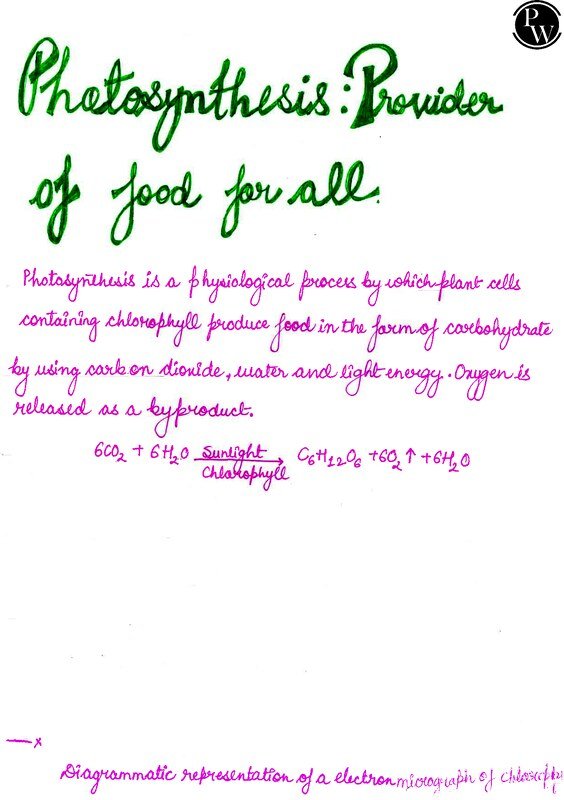 PW
Photosynthesis: Provider
of food for all.
Photosynthesis is a physiological process by which plant cells
containing chlorophyll produce food in the form of carbohydrate
by using carbon dioxide, water and light energy. Oxygen is
released as a byproduct.
6CO₂ + 6H₂O Sunlight → C₆H₁₂O₆ + 6O₂ ↑ + 6H₂O
Chlorophyll
Diagrammatic representation of a electron micrograph of